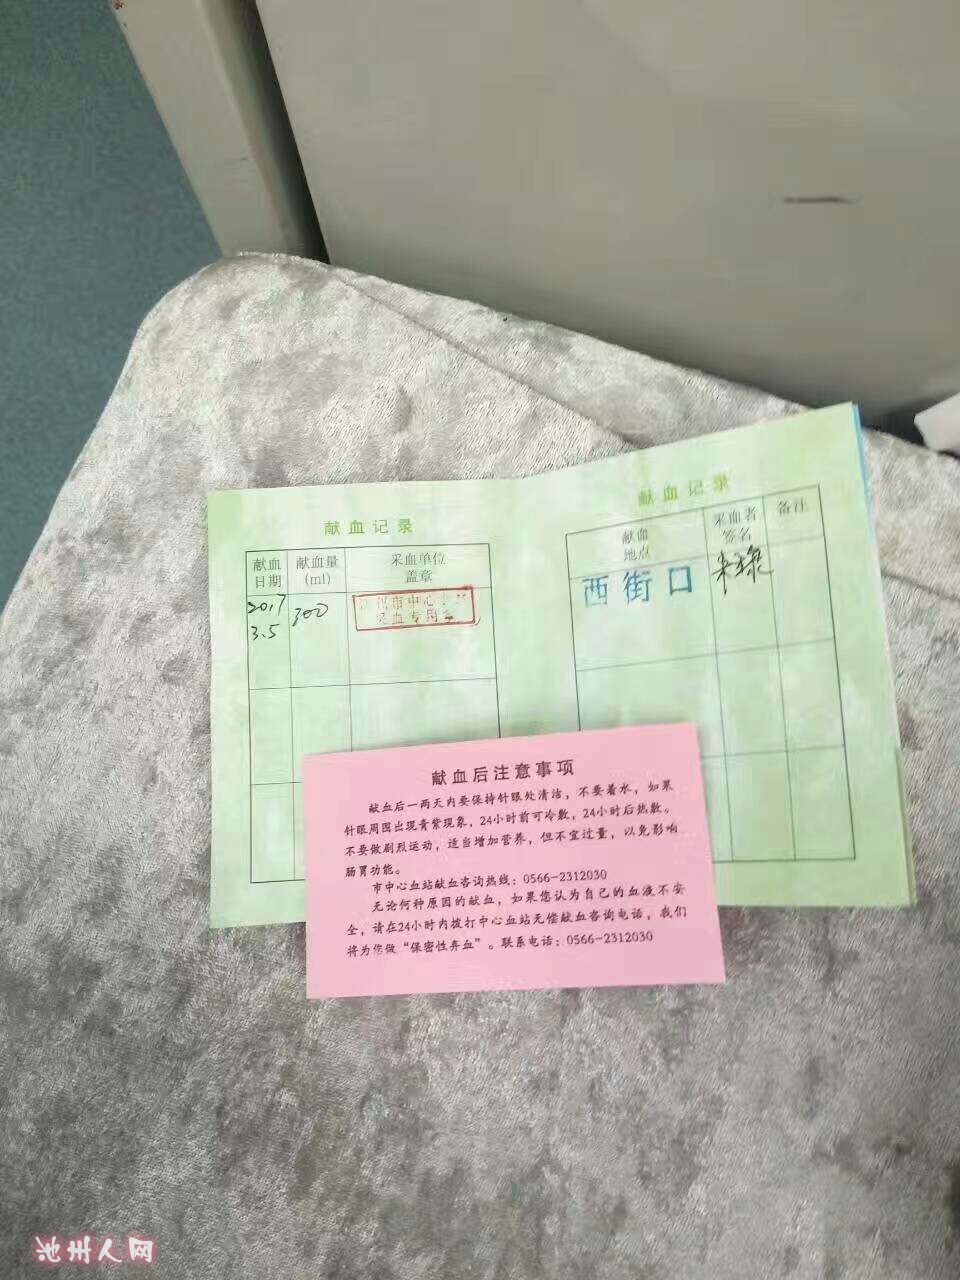 献血记录
献血日期
献血量(ml)
采血单位盖章
2017
3.5
300
市中心
血专用
献血记录
献血地点
采血者签名
备注
西街口
献血后注意事项
献血后一两天内要保持针眼处清洁，不要着水，如果
针眼周围出现青紫现象，24小时前可冷敷，24小时后热敷。
不要做剧烈运动，适当增加营养，但不宜过量，以免影响
肠胃功能。
市中心血站献血咨询热线：0566-2312030
无论何种原因的献血，如果您认为自己的血液不安
全，请在24小时内拨打中心血站无偿献血咨询电话，我们
将为您做“保密性弃血”。联系电话：0566-2312030
池州人网